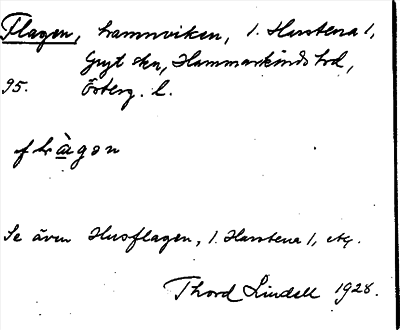 Flagen, hamnviken, 1. Harstena 1,
Gryt skn, Hammarkinds hd,
95. Österg. l.
flàgən
Se även Husflagen, 1. Harstena 1, etc.
Thord Lindell 1928.